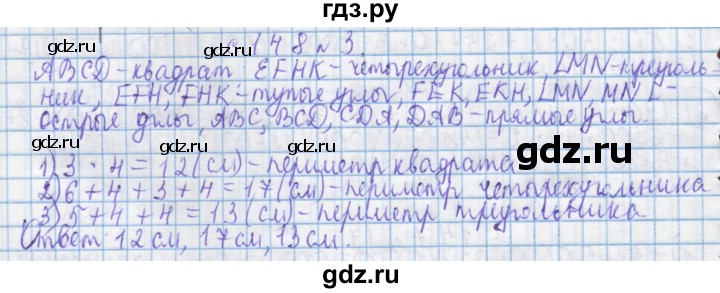 гдз.ру
с. 148 № 3.
gdz.ru gdz.ru
ABCD - квадрат EFHK - четырехугольник, LMN - треуголь-
ник, EFH, FHK - тупые углы, FEK, EKH, LMN MNL -
острые углы, ABC, BCD, CDA, DAB - прямые углы.
gdz.ru gdz.ru
1) 3 · 4 = 12 (см) - периметр квадрата
2) 6 + 4 + 3 + 4 = 17 (см) - периметр четырехугольника
3) 5 + 4 + 4 = 13 (см) - периметр триугольника.
gdz.ru gdz.ru
Ответ 12 см, 17 см, 13 см.
gdz.ru